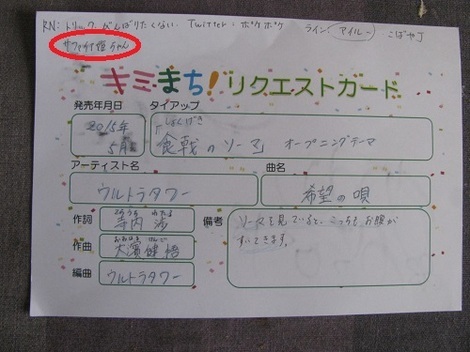 RN:トリック、がんばりたくない、Twitter:ポケポケ
ライン:アイルー こばやJ
サファイア姫ちゃん
キミまち!リクエストカード
発売年月日 タイアップ
2015年
5月
しょくげき
「食戟のソーマ」オープニングテーマ
アーティスト名 曲名
ウルトラタワー 希望の唄
作詞 てらうち わたる
寺内 渉
作曲 おおはま けんご
大濱 健悟
編曲 ウルトラタワー
備考 ソーマを見ていると、こっちもお腹が
すいてきます。